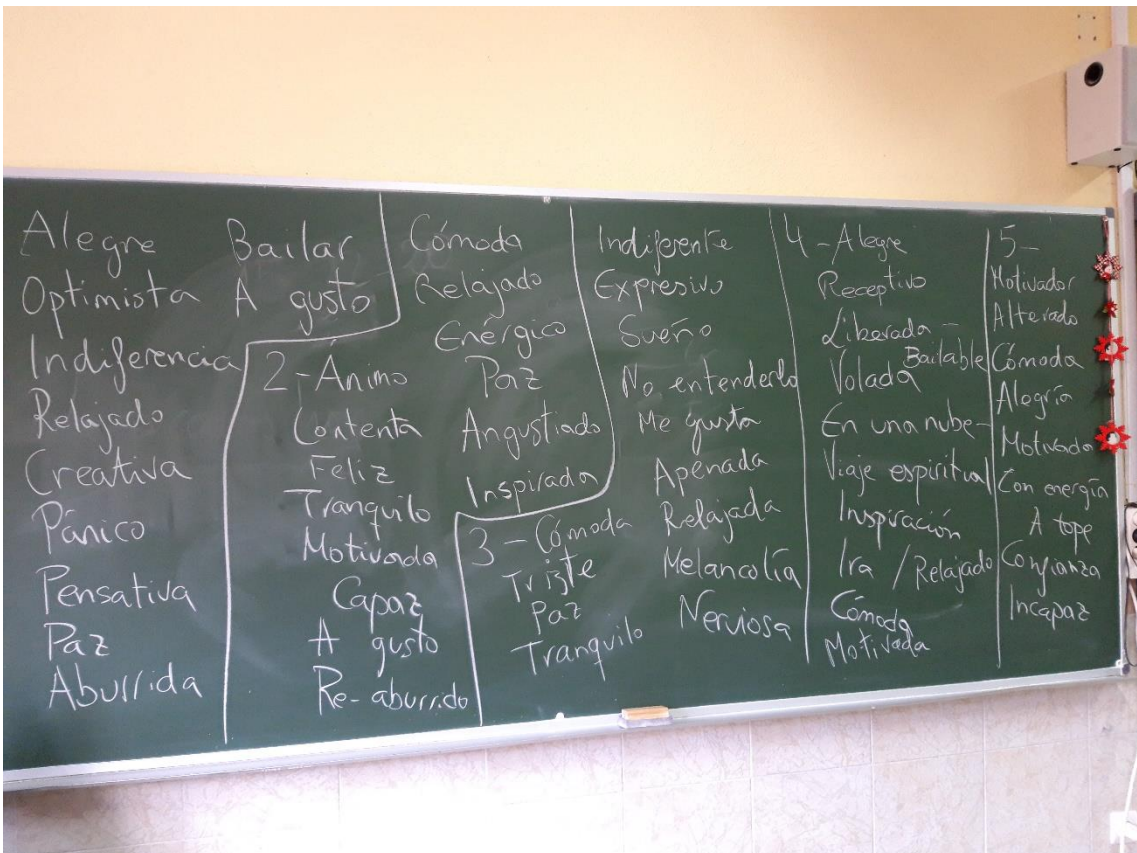 Alegre
Optimista
Indiferencia
Relajado
Creativa
Pánico
Pensativa
Paz
Aburrida
Bailar
A gusto
2-Ánimo
Contenta
Feliz
Tranquilo
Motivada
Capaz
A gusto
Re-aburrido
Cómoda
Relajado
Enérgico
Paz
Angustiado
Inspirada
3-Cómoda
Triste
Paz
Tranquilo
Indiferente
Expresivo
Sueño
No entenderlo
Me gusta
Apenada
Relajada
Melancolía
Nerviosa
4-Alegre
Receptivo
Liberada-
Bailable
Volada
En una nube-
Viaje espiritual
Inspiración
Ira / Relajado
Cómoda
Motivada
5-
Motivador
Alterado
Cómoda
Alegría
Motivado
Con energía
A tope
Confianza
Incapaz